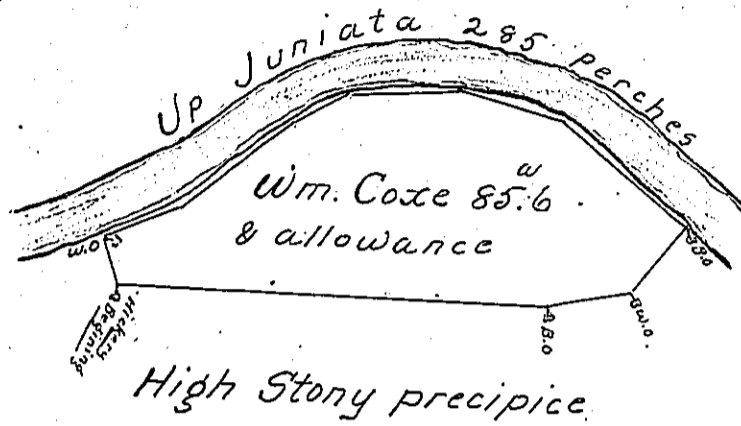 Up Juniata 285 perches
Wm. Coxe 85.6 a
& allowance
W.O
B.O
Hickery
Begining
B.O
W.O.
High Stony precipice